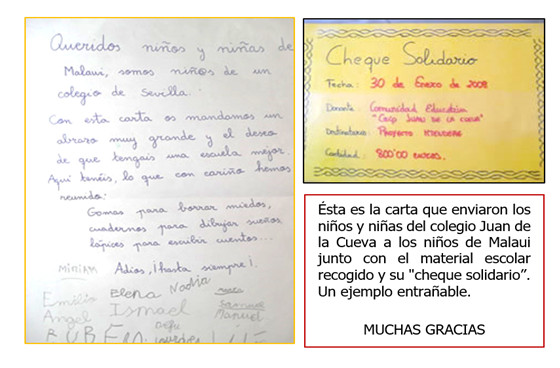 Queridos niños y niñas de
Malaui, somos niñ@s de un
colegio de Sevilla.
Con esta carta os mandamos un
abrazo muy grande y el deseo
de que tengais una escuela mejor.
Aquí tenéis, lo que con cariño hemos
reunido:
Gomas para borrar miedos,
cuadernos para dibujar sueños
lápices para escribir cuentos...
Adios, ¡hasta siempre!
MIRIAM
Emilio Elena Nadia
Angel Ismael Manuel
RUBEN
Cheque Solidario
Fecha: 30 de Enero de 2008
Donante: Comunidad Educativa
"Ceip Juan de la Cueva"
Destinatario: Proyecto
Cantidad: 800'00 euros.
Ésta es la carta que enviaron los
niños y niñas del colegio Juan de
la Cueva a los niños de Malaui
junto con el material escolar
recogido y su "cheque solidario”.
Un ejemplo entrañable.
MUCHAS GRACIAS